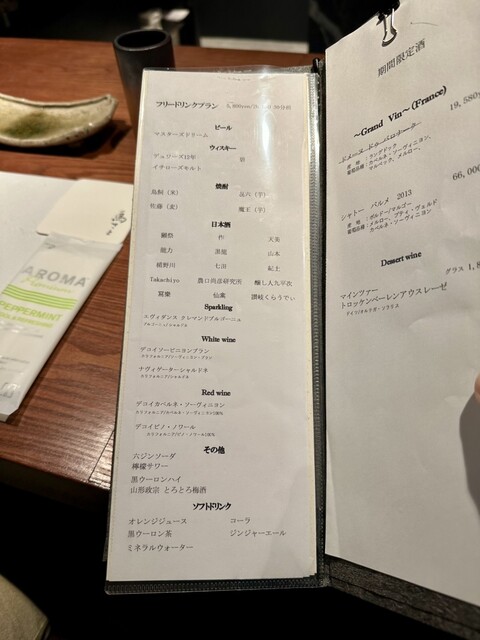 フリードリンクプラン
ビール
マスターズドリーム
ウィスキー
デュワーズ12年
イチローズモルト
焼酎
鳥飼(米)
佐藤(麦)
魔王(芋)
日本酒
獺祭 作 天美
能力 黒龍 山本
積野川 七田 紀土
Takachiyo 農口尚彦研究所 醸し人九平次
賀茂 仙禽 讃岐くらうでぃ
Sparkling
エヴィダンス クレマンドブルゴーニュ
White wine
デコイソービニヨンブラン
ナヴィゲーターシャルドネ
Red wine
デコイカベルネ・ソーヴィニヨン
デコイピノ・ノワール
その他
六ジンソーダ
檸檬サワー
黒ウーロンハイ
山形政宗 とろとろ梅酒
ソフトドリンク
オレンジジュース コーラ
黒ウーロン茶 ジンジャーエール
ミネラルウォーター
期間限定酒
～Grand Vin～(France)
19,580
カベルネ・ソーヴィニヨン、
マルベック、メルロー、
66,000
シャトー パルメ 2013
産地:ボルドー/マルゴー
葡萄品種:メルロー、プティ・ヴェルド
カベルネ・ソーヴィニヨン
Dessert wine
グラス 1,8
マインツァー
トロッケンベーレンアウスレーゼ
AROMA
PEPPERMINT